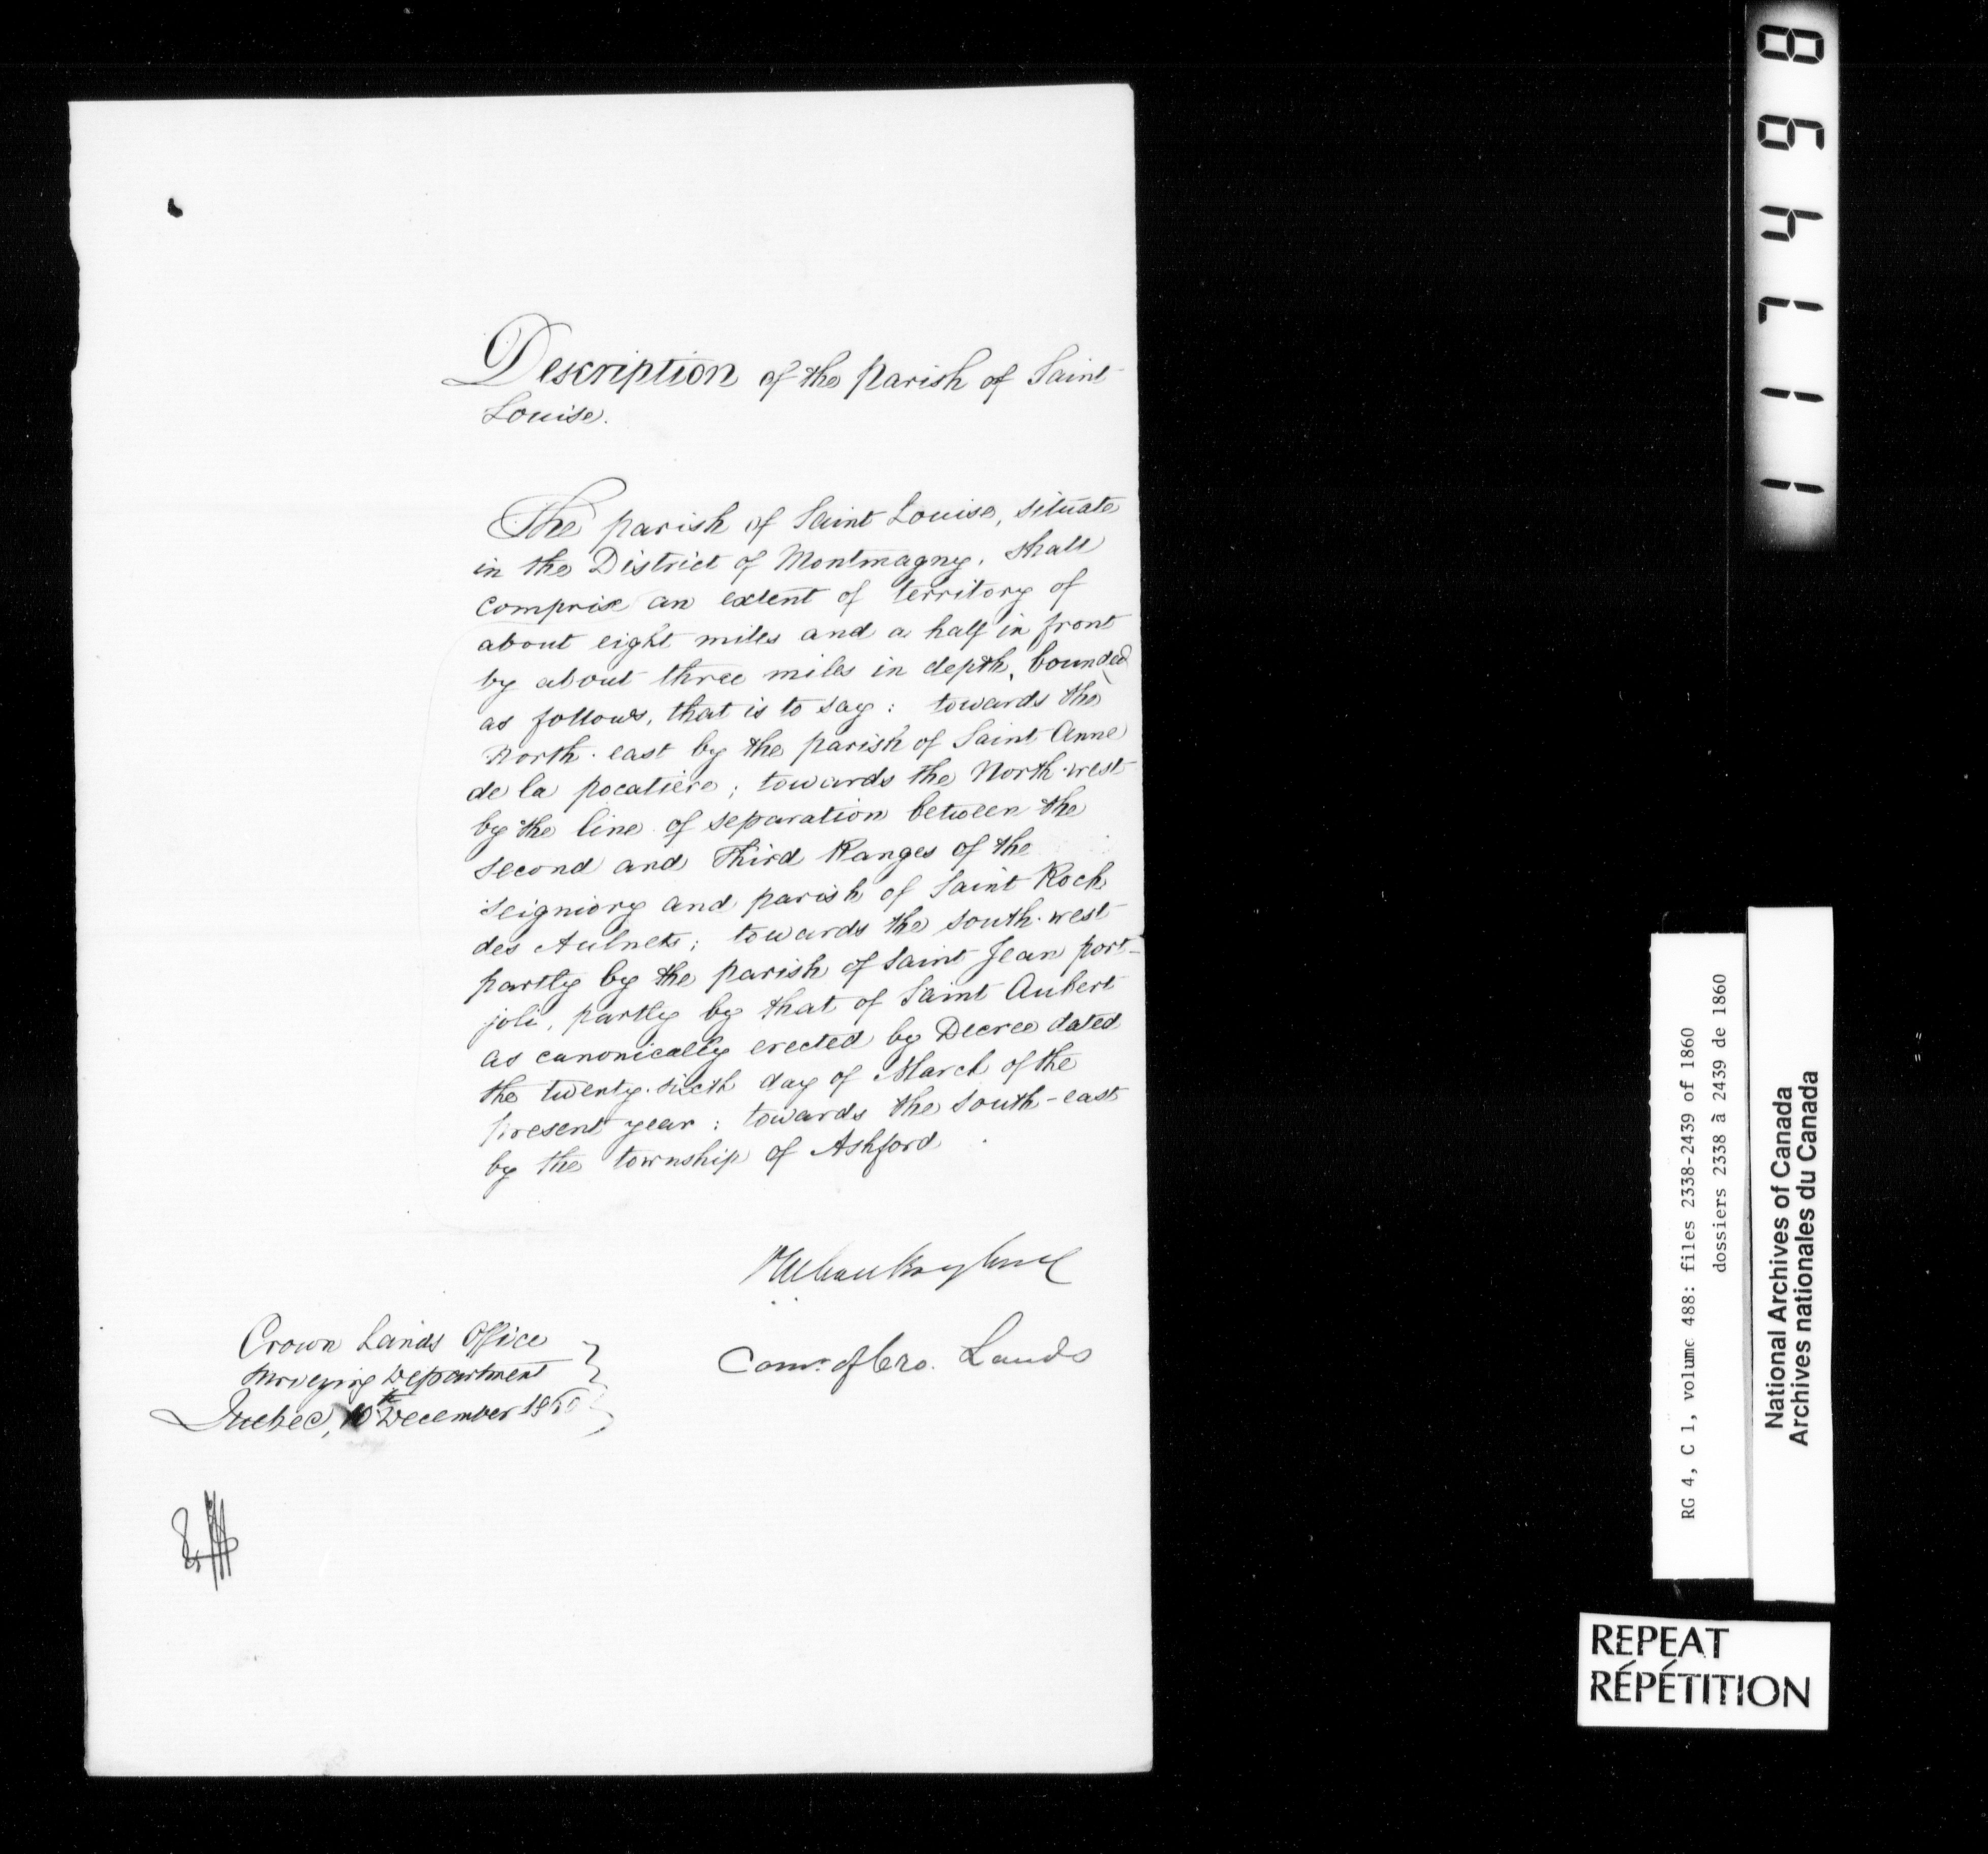 Description of the parish of Saint
Louise.
The parish of Saint Louise, situate
in the District of Montmagny, shall
comprise an extent of territory of
about eight miles and a half in front
by about three miles in depth, bounded
as follows, that is to say: towards the
North-east by the parish of Saint Anne
de la pocatiere; towards the North-west
by the line of separation between the
second and Third Ranges of the
seigniory and parish of Saint Roch
des Aulnets; towards the South-west
partly by the parish of Saint Jean port-
joli, partly by that of Saint Aubert
as canonically erected by Decree dated
the twenty-sixth day of March of the
present year; towards the South-east
by the township of Ashford.
Com.r of Cro. Lands
Crown Lands Office
Surveying Department
Quebec, 10th December 1860
119 4 7 1 1
RG 4, C 1, volume 488: files 2338-2439 of 1860
dossiers 2338 à 2439 de 1860
National Archives of Canada
Archives nationales du Canada
REPEAT
RÉPÉTITION